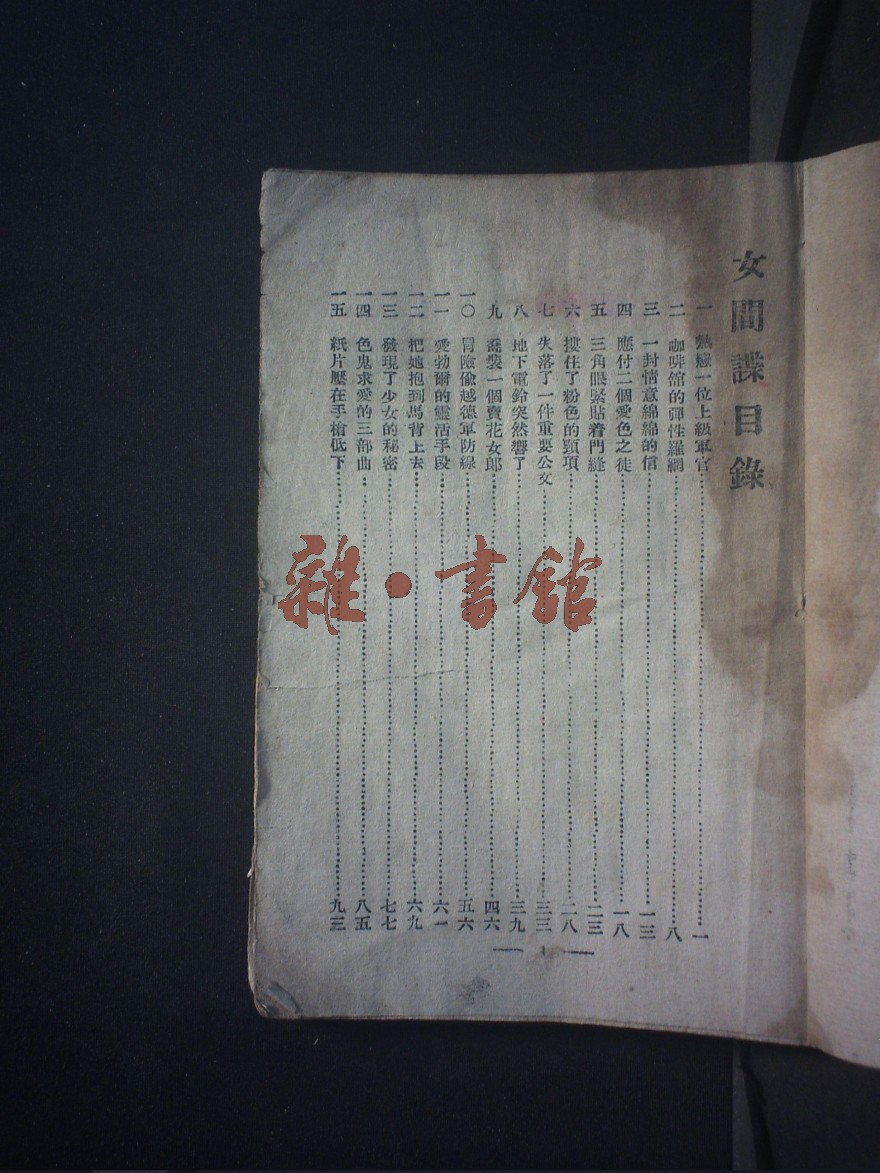 女間諜目錄
一 熱戀一位上級軍官……一
二 咖啡館的彈性羅網……八
三 一封情意綿綿的信……一三
四 應付二個愛色之徒……一八
五 三角眼緊貼着門縫……二三
六 摟住了粉色的頸項……二八
七 失落了一件重要公文……三三
八 地下電鈴突然響了……三九
九 喬裝一個賣花女郎……四六
一〇 冒險偷越德軍防線……五六
一一 愛勃爾的靈活手段……六一
一二 把她抱到馬背上去……六九
一三 發現了少女的秘密……七七
一四 色鬼求愛的三部曲……八五
一五 紙片壓在手槍低下……九三
— 1 —
雜·書館